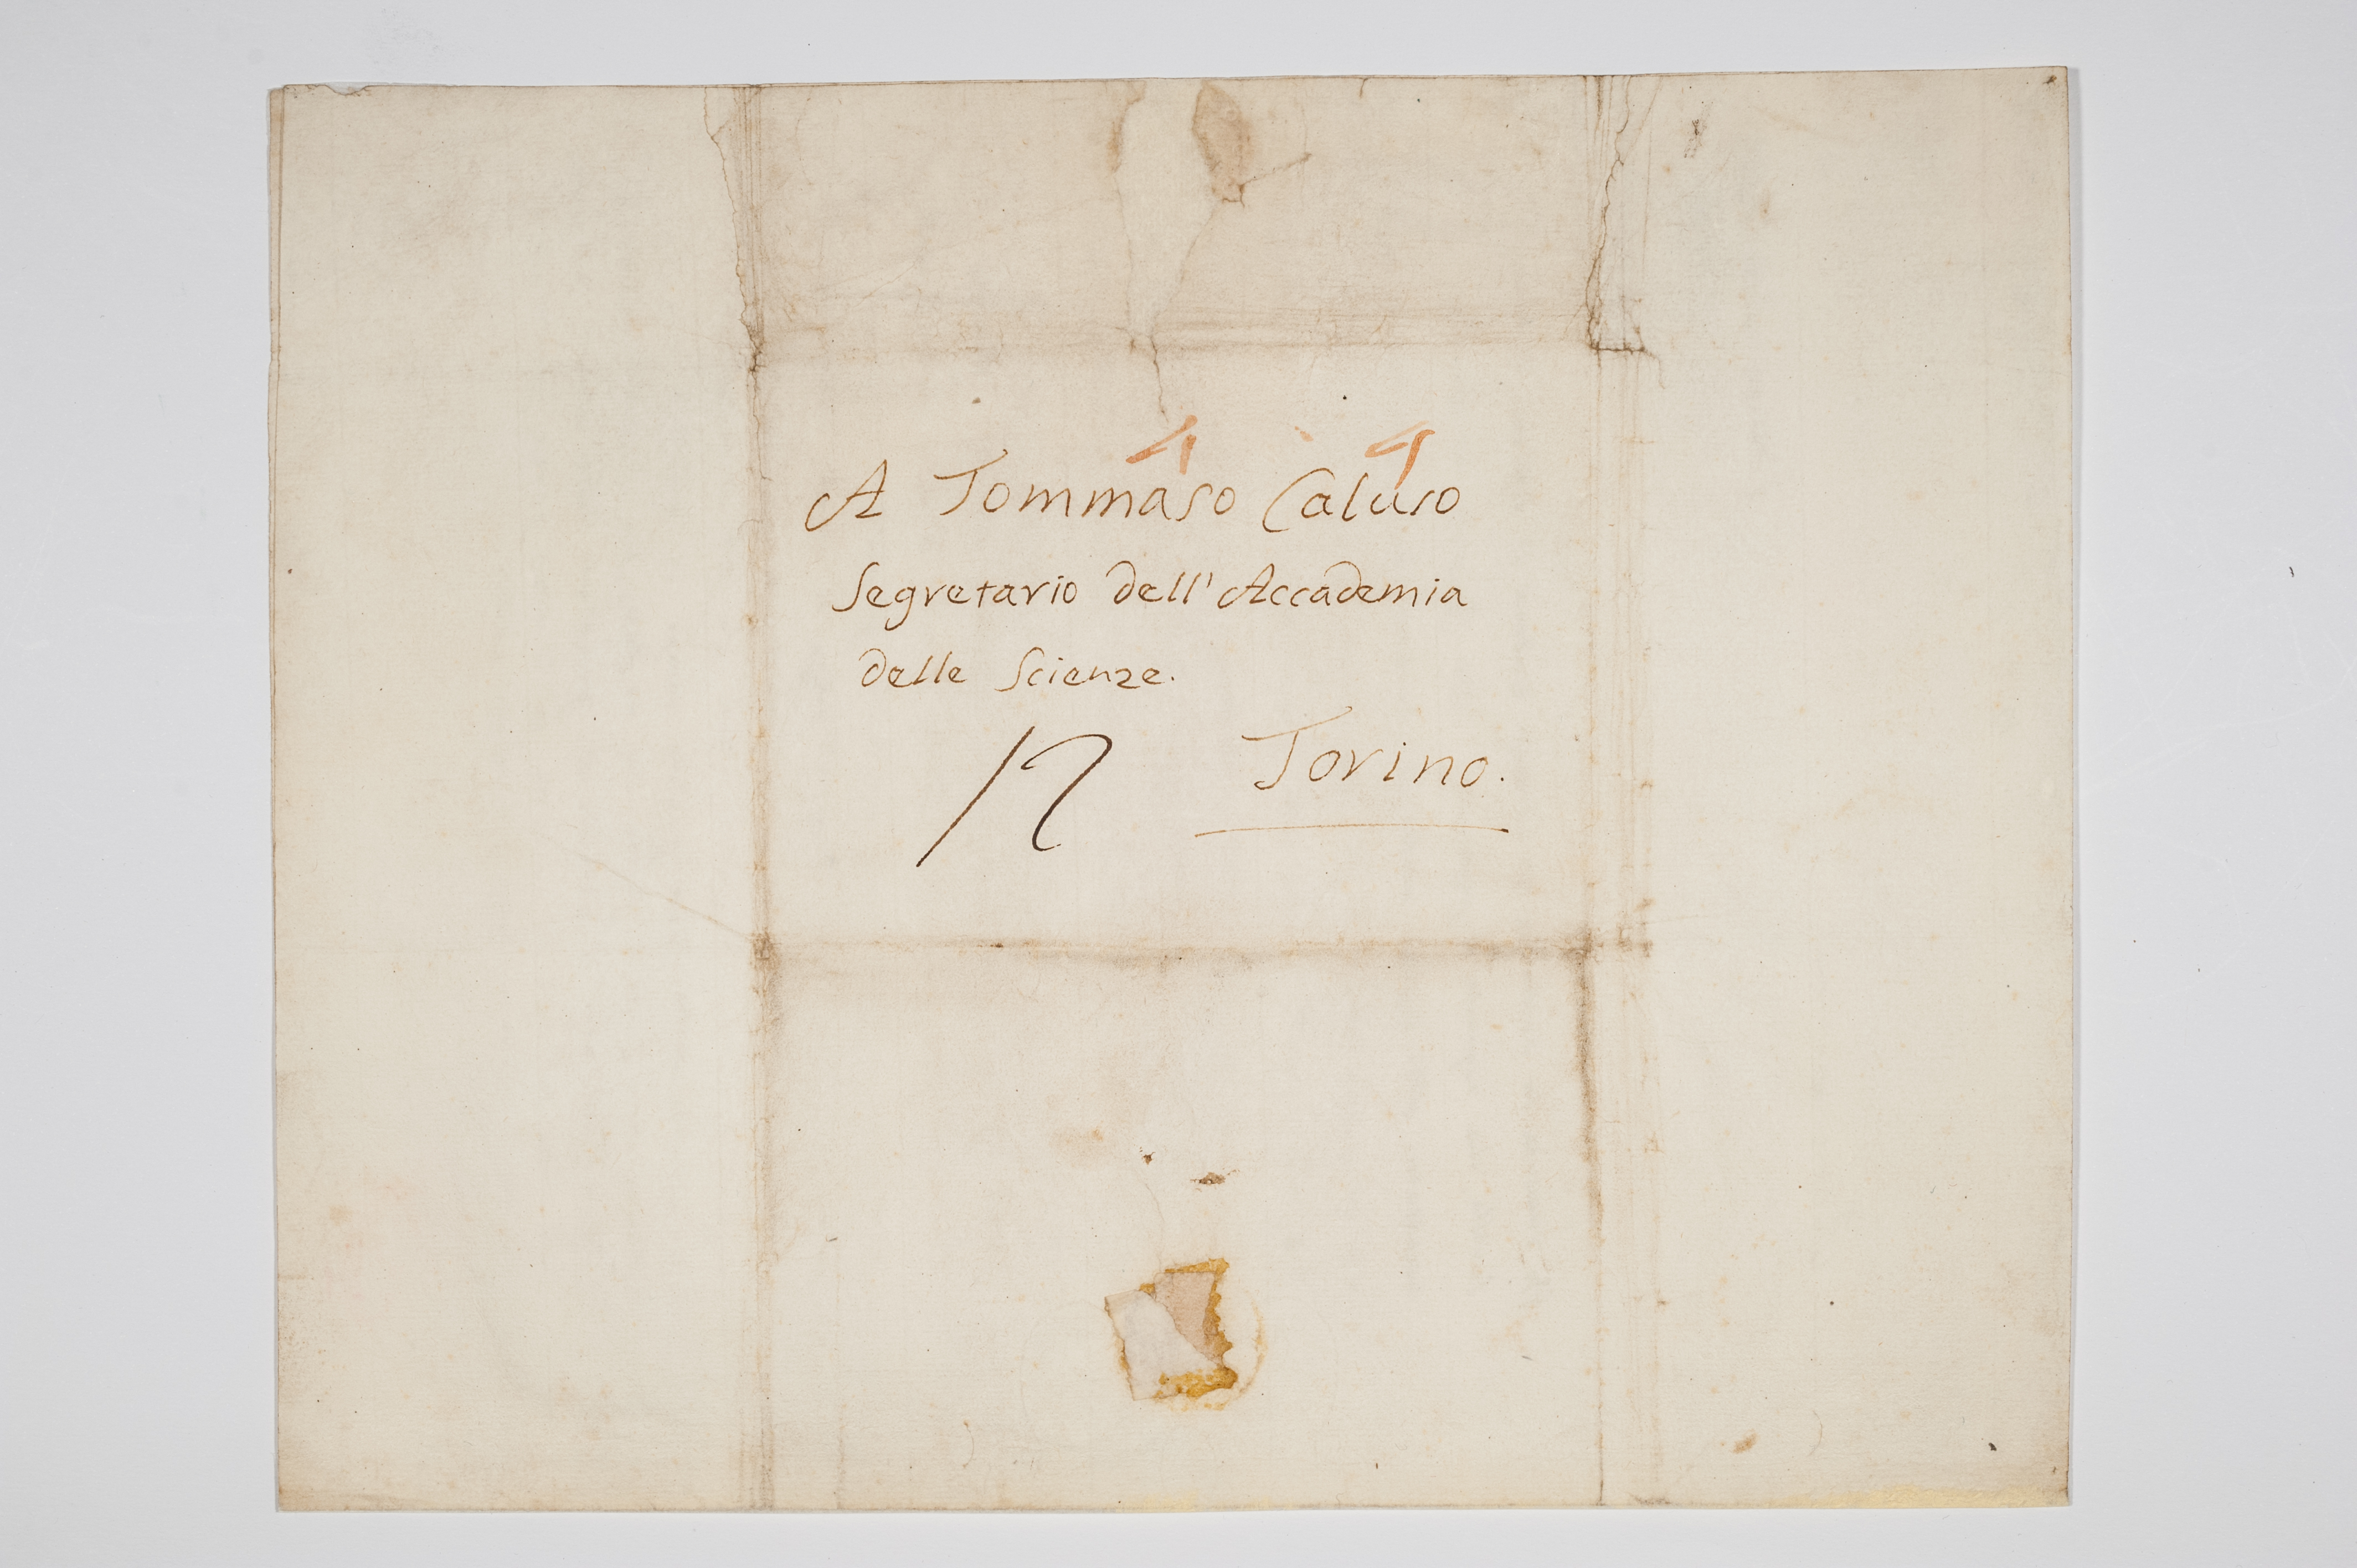 A Tommaso Caluso
Segretario dell'Accademia
delle Scienze.
Torino.